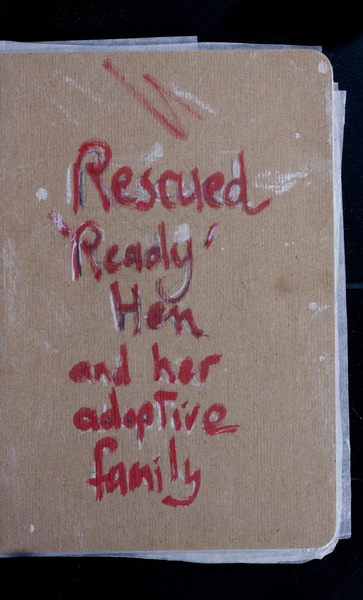 Rescued
'Ready'
Hen
and her
adoptive
family